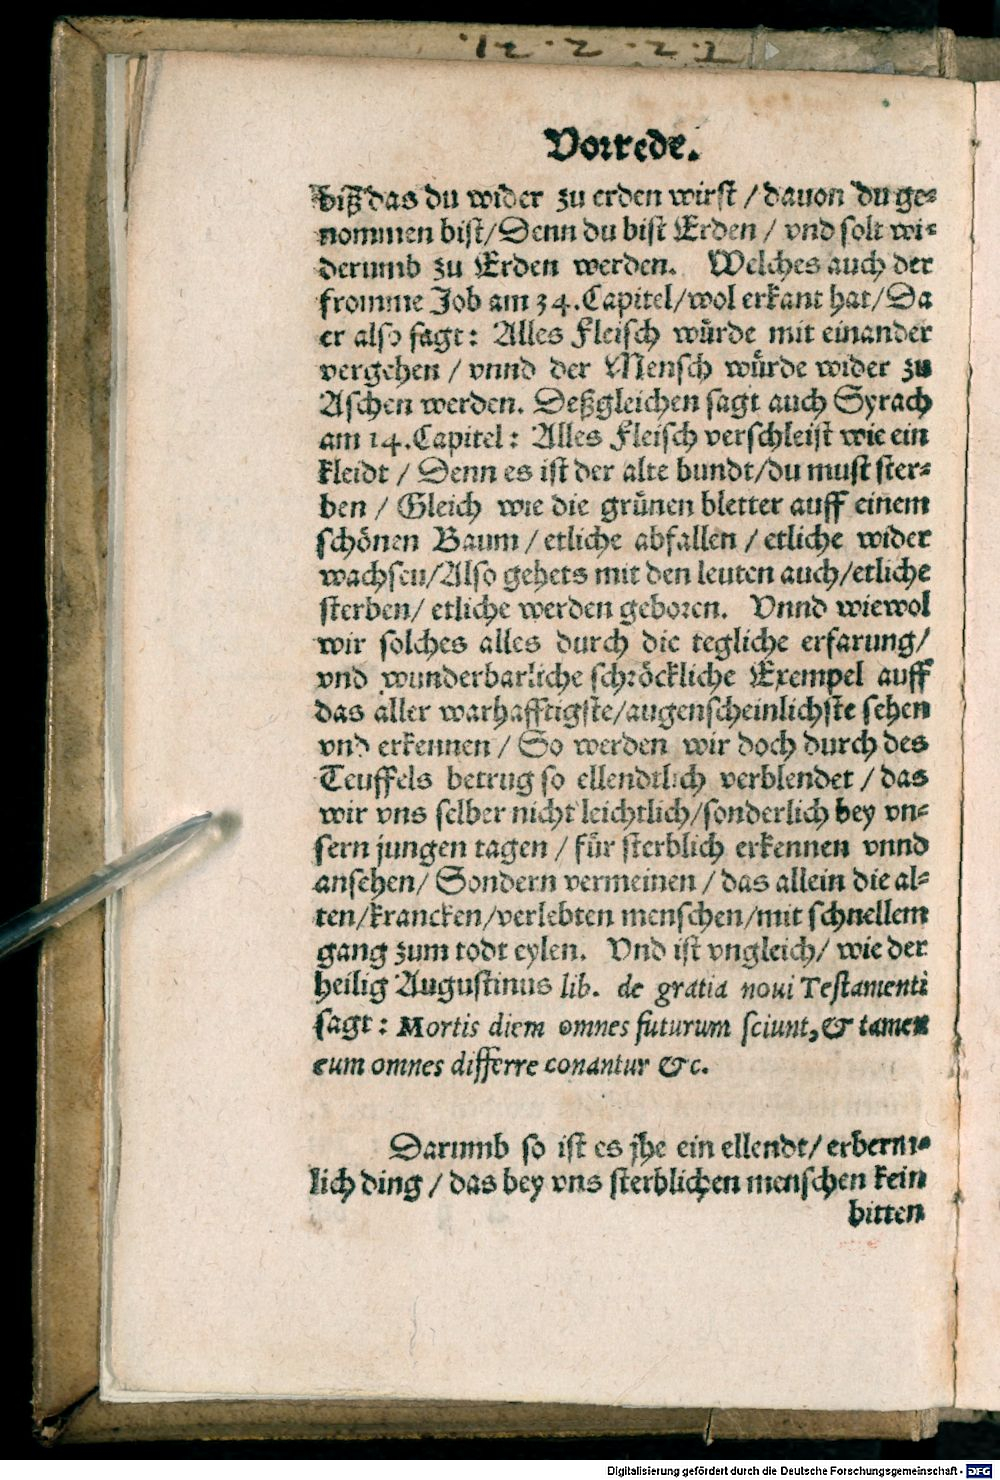 12.2.22
Vorrede.
biß das du wider zu erden wirst / dauon du ge⸗
nommen bist/ Denn du bist Erden / vnd solt wi⸗
derumb zu Erden werden. Welches auch der
fromme Job am 34. Capitel/ wol erkant hat/ Da
er also sagt: Alles Fleisch würde mit einander
vergehen / vnnd der Mensch würde wider zu
Aschen werden. Deßgleichen sagt auch Syrach
am 14. Capitel: Alles Fleisch verschleist wie ein
kleidt / Denn es ist der alte bundt/ du must ster⸗
ben / Gleich wie die grünen bletter auff einem
schönen Baum / etliche abfallen / etliche wider
wachsen/ Also gehets mit den leuten auch/ etliche
sterben/ etliche werden geboren. Vnnd wiewol
wir solches alles durch die tegliche erfarung/
vnd wunderbarliche schröckliche Exempel auff
das aller warhafftigste/ augenscheinlichste sehen
vnd erkennen / So werden wir doch durch des
Teuffels betrug so ellendtlich verblendet / das
wir vns selber nicht leichtlich/ sonderlich bey vn⸗
sern jungen tagen / für sterblich erkennen vnnd
ansehen/ Sondern vermeinen / das allein die al⸗
ten/ krancken/ verlebten menschen/ mit schnellem
gang zum todt eylen. Vnd ist vngleich/ wie der
heilig Augustinus lib. de gratia noui Testamenti
sagt: Mortis diem omnes futurum sciunt, & tamen
eum omnes differre conantur &c.
Darumb so ist es jhe ein ellendt/ erberm⸗
lich ding / das bey vns sterblichen menschen kein
bitten
Digitalisierung gefördert durch die Deutsche Forschungsgemeinschaft - DFG